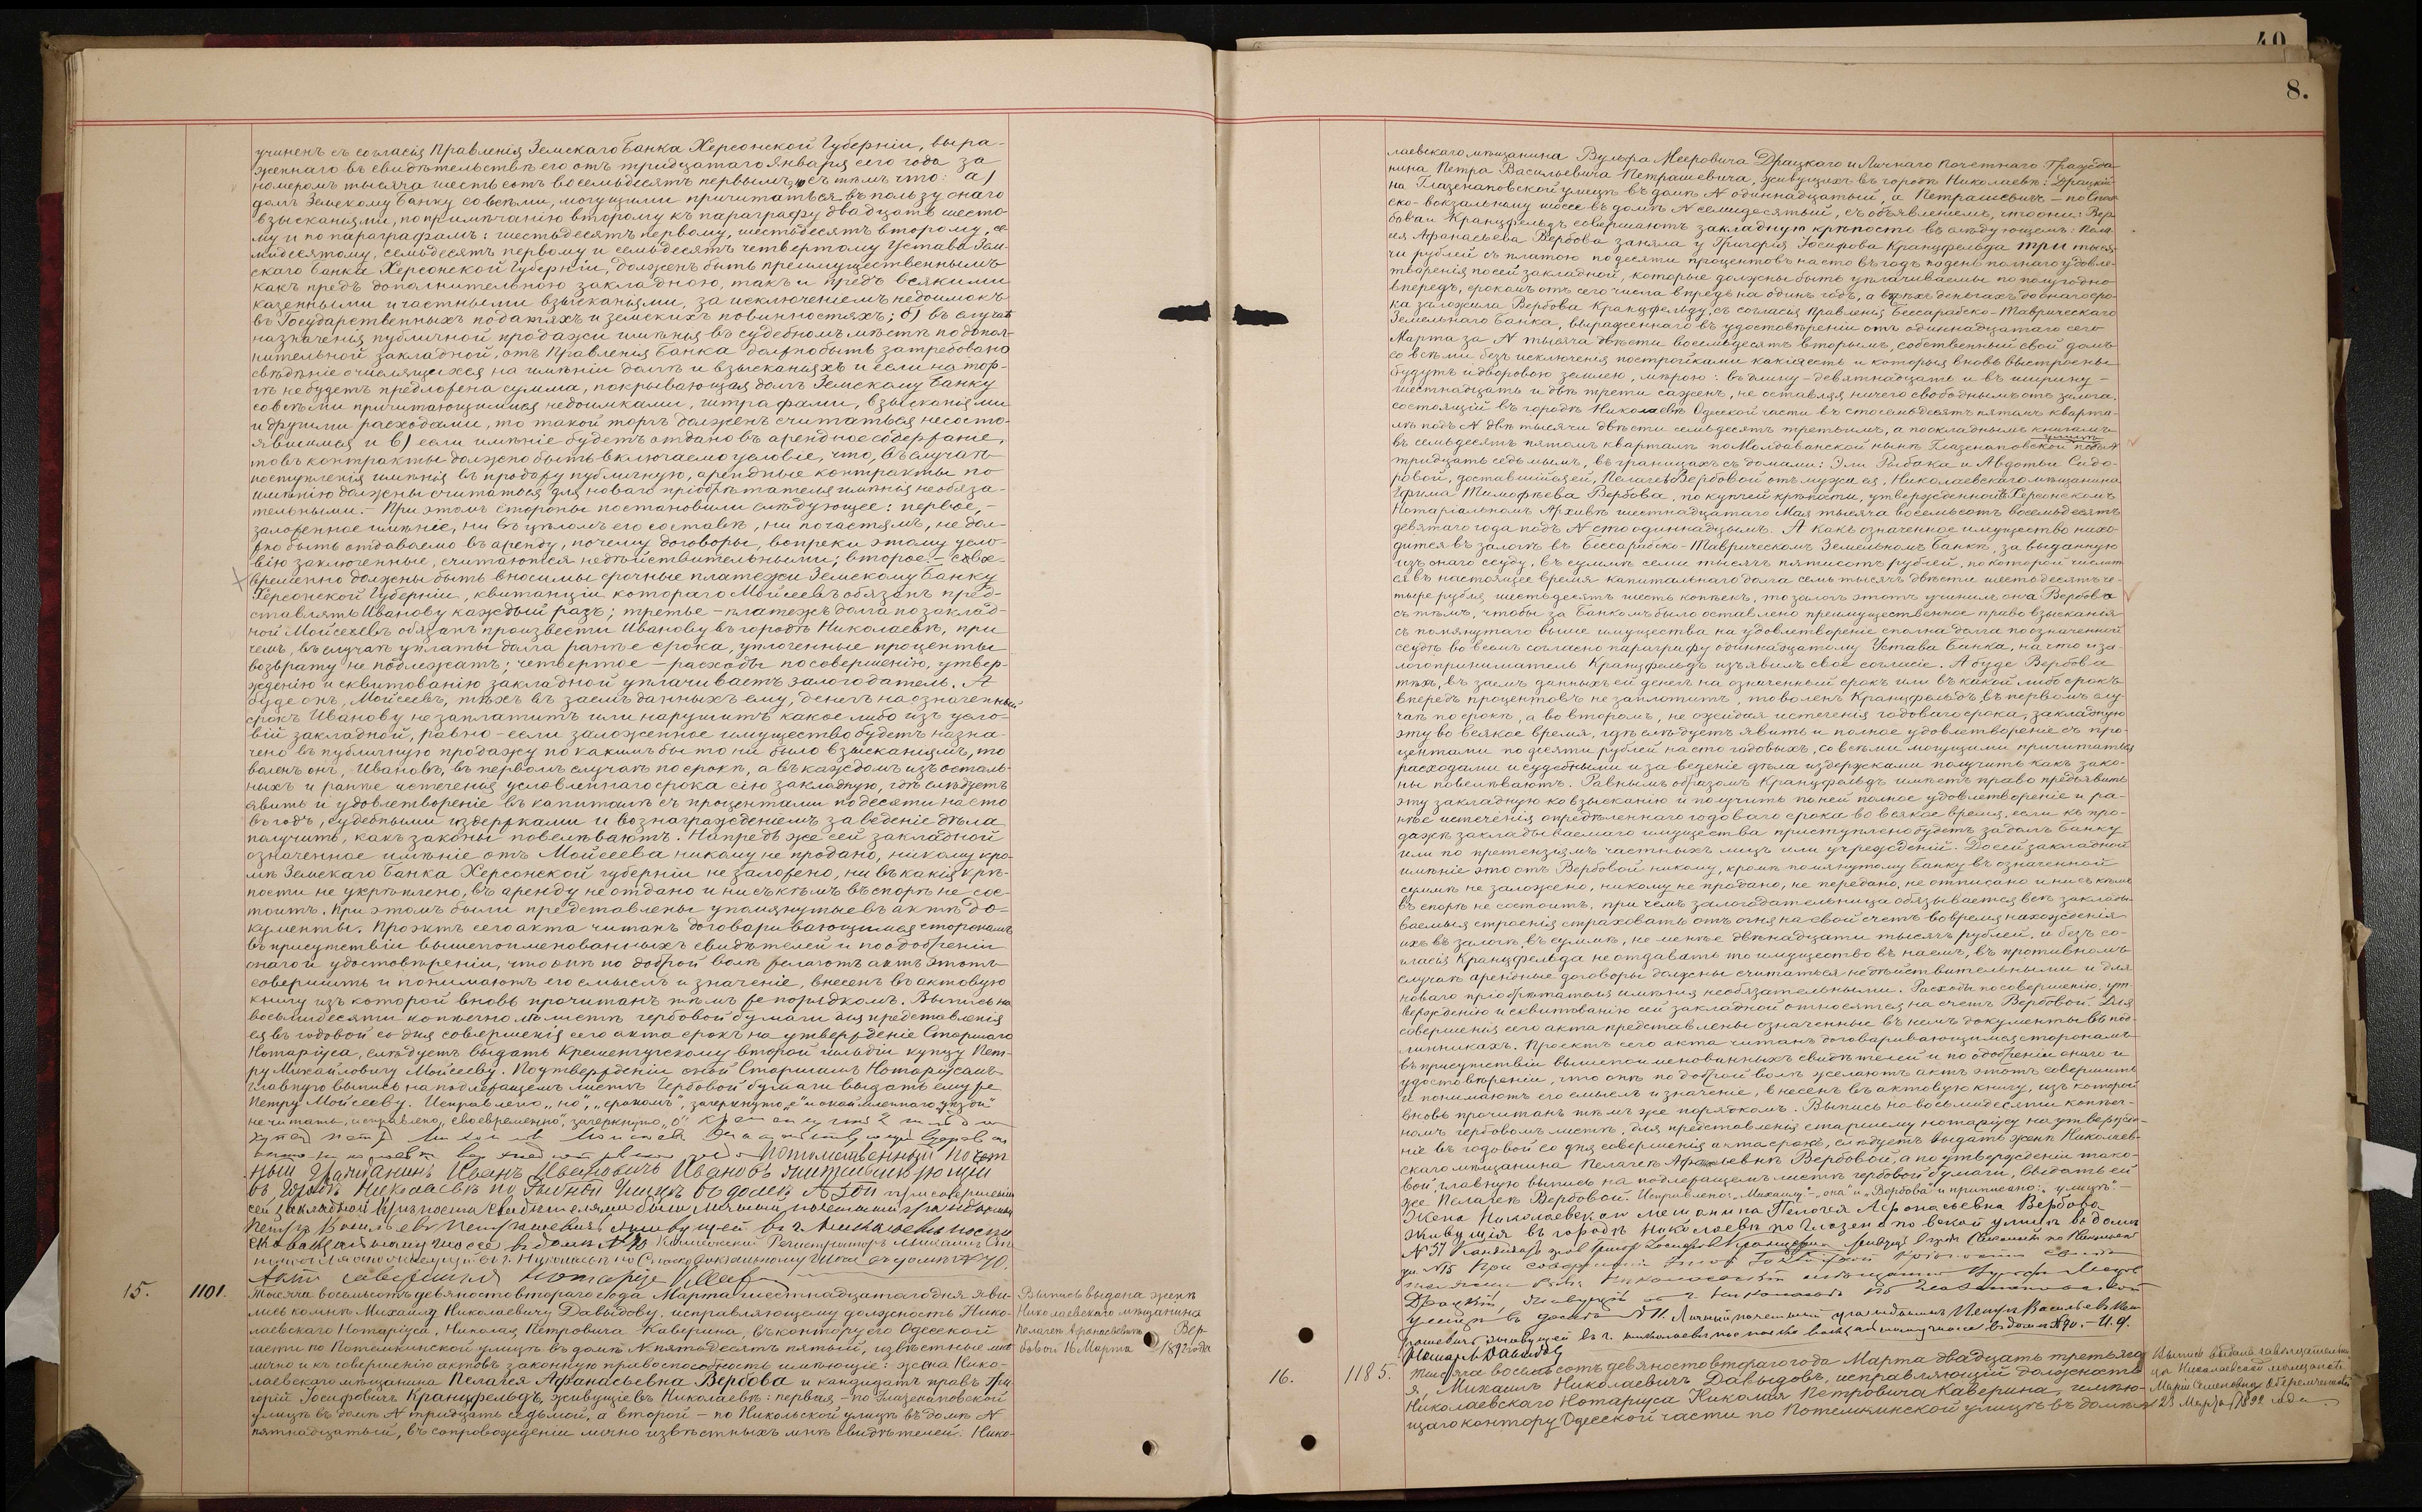 учиненъ съ согласія Правленія Земскаго Банка Херсонской Губерніи, выра-
женнаго въ свидѣтельствѣ его отъ тридцатаго Января сего года за
номеромъ тысяча шестьсотъ восемьдесятъ первымъ, съ тѣмъ что: а)
долгъ Земскому Банку со всѣми, могущими причитаться въ пользу онаго
взысканіями, по примѣчанію второму къ параграфу двадцать шесто-
му и по параграфамъ: шестьдесятъ первому, шестьдесятъ второму, се-
мидесятому, семьдесятъ первому и семьдесятъ четвертому Устава Зем-
скаго Банка Херсонской Губерніи, долженъ быть преимущественнымъ
какъ предъ дополнительною закладною, такъ и предъ всякими
казенными и частными взысканіями, за исключеніемъ недоимокъ
въ Государственныхъ податяхъ и земскихъ повинностяхъ; б) въ случаѣ
назначенія публичной продажи имѣнія въ судебномъ мѣстѣ по допол-
нительной закладной, отъ Правленія Банка должно быть затребовано
свѣдѣніе о числящихся на имѣніи долгѣ и взысканіяхъ и если на тор-
гѣ не будетъ предложена сумма, покрывающая долгъ Земскому Банку
со всѣми причитающимися недоимками, штрафами, взысканіями
и другими расходами, то такой торгъ долженъ считаться несосто-
явшимся и в) если имѣніе будетъ отдано въ арендное содержаніе,
то въ контракты должно быть включаемо условіе, что, въ случаѣ
поступленія имѣнія въ продажу публичную, арендные контракты по
имѣнію должны считаться для новаго пріобрѣтателя имѣнія необяза-
тельными. – При этомъ стороны постановили слѣдующее: первое, –
заложенное имѣніе, ни въ цѣломъ его составѣ, ни по частямъ, не дол-
жно быть отдаваемо въ аренду, почему договоры, вопреки этому усло-
вію заключенные, считаются недѣйствительными; второе – свое-
временно должны быть вносимы срочные платежи Земскому Банку
Херсонской Губерніи, квитанціи котораго Мойсеевъ обязанъ пред-
ставлять Иванову каждый разъ; третье – платежъ долга по заклад-
ной Мойсеевъ обязанъ произвести Иванову въ городѣ Николаевѣ, при
чемъ, въ случаѣ уплаты долга ранѣе срока, уплоченные проценты
возврату не подлежатъ; четвертое – расходы по совершенію, утвер-
жденію и сквитованію закладной уплачиваетъ залогодатель. А
буде онъ, Мойсеевъ, тѣхъ въ заемъ данныхъ ему, денегъ на означенный
срокъ Иванову не заплатитъ или нарушитъ какое либо изъ усло-
вій закладной, равно – если заложенное имущество будетъ назна-
чено въ публичную продажу по какимъ бы то ни было взысканіямъ, то
воленъ онъ, Ивановъ, въ первомъ случаѣ по срокѣ, а въ каждомъ изъ осталь-
ныхъ и ранѣе истеченія условленнаго срока сію закладную, гдѣ слѣдуетъ
явить и удовлетвореніе въ капиталѣ съ процентами по десяти на сто
въ годъ, судебными издержками и вознагражденіемъ за веденіе дѣла
получить, какъ законы повелѣваютъ. Напредь же сей закладной
означенное имѣніе отъ Мойсеева никому не продано, никому кро-
мѣ Земскаго Банка Херсонской губерніи не заложено, ни въ какія крѣ-
пости не укрѣплено, въ аренду не отдано и ни съ кѣмъ въ спорѣ не сос-
тоитъ. При этомъ были представлены упомянутые въ актѣ до-
кументы. Проэктъ сего акта читанъ договаривающимся сторонамъ
въ присутствіи вышепоименованныхъ свидѣтелей и по одобреніи
онаго и удостовѣреніи, что онѣ по доброй волѣ желаютъ актъ этотъ
совершить и понимаютъ его смыслъ и значеніе, внесенъ въ актовую
книгу изъ которой вновь прочитанъ тѣмъ же порядкомъ. Выпись на
восьмидесяти копѣечномъ листѣ гербовой бумаги для представленія
ея въ годовой со дня совершенія сего акта срокъ на утвержденіе Старшаго
Нотаріуса, слѣдуетъ выдать Кременчугскому второй гильдіи купцу Пет-
ру Михайловичу Мойсееву. По утвержденіи оной Старшимъ Нотаріусомъ
главную выпись на подлежащемъ листѣ гербовой бумаги выдать ему же
Петру Мойсееву. Исправлено „но", „срокомъ", зачеркнуто „е"
не читать, исправлено „своевременно", зачеркнуто „о"
Потомственный Почет
ный Гражданинъ Иванъ Ивановичъ Ивановъ жительствующій
въ городѣ Николаевѣ по Рыбной улицѣ въ домѣ при совершеніи
сей закладной крѣпости свидѣтелями были Личный почетный гражданинъ
Петръ Васильевъ Петрашевичъ живущей въ г. Николаевѣ по Спа
ско вокзальному шоссе въ домѣ №70 Коллежскій Регистраторъ Михаилъ
живущій въ г. Николаевѣ по Спаско вокзальному шоссе въ домѣ №70.
Актъ совершилъ Нотаріусъ
15. 1101. Тысяча восемьсотъ девяносто втораго года Марта шестнадцатаго дня яви-
лись ко мнѣ Михаилу Николаевичу Давыдову, исправляющему должность Нико-
лаевскаго Нотаріуса, Николая Петровича Каверина, въ контору его Одесской
части по Потемкинской улицѣ въ домѣ № пятьдесятъ пятый, извѣстные мнѣ
лично и къ совершенію актовъ законную правоспособность имѣющіе: жена Нико-
лаевскаго мѣщанина Пелагея Афанасьевна Вербова и кандидатъ правъ Гри-
горій Іосифовичъ Кранцфельдъ, живущіе въ Николаевѣ: первая – по Глазенаповской
улицѣ въ домѣ № тридцать седьмой, а второй – по Никольской улицѣ въ домѣ №
пятнадцатый, въ сопровожденіи лично извѣстныхъ мнѣ свидѣтелей: Нико-
Выпись выдана женѣ
Николаевскаго мѣщанина
Пелагеѣ Афанасьевнѣ Вер-
бовой 16 Марта 1892 года
40
8.
лаевскаго мѣщанина Вульфа Мееровича Драцкаго и Личнаго Почетнаго Гражда
нина Петра Васильевича Петрашевича, живущихъ въ городѣ Николаевѣ: Драцкій
на Глазенаповской улицѣ въ домѣ № одиннадцатый, а Петрашевичъ – по Спас-
ско-вокзальному шоссе въ домѣ № семидесятый, съ объявленіемъ, что они: Вер
бова и Кранцфельдъ совершаютъ закладную крѣпость въ слѣдующемъ: Пела
гея Афанасьева Вербова заняла у Григорія Іосифова Кранцфельда три тыся
чи рублей съ платою по десяти процентовъ на сто въ годъ по день полнаго удовле-
творенія по сей закладной, которые должны быть уплачиваемы по полугодно
впередъ, срокомъ отъ сего числа впредь на одинъ годъ, а въ тѣхъ деньгахъ до онаго сро-
ка заложила Вербова Кранцфельду, съ согласія Правленія Бессарабско-Таврическаго
Земельнаго Банка, выраженнаго въ удостовѣреніи отъ одиннадцатаго сего
Марта за № тысяча двѣсти восемьдесятъ вторымъ, собственный свой домъ
со всѣми безъ исключенія постройками какія есть и которыя вновь выстроены
будутъ и дворовою землею, мѣрою: въ длину – девятнадцать и въ ширину –
шестнадцать и двѣ трети саженъ, не оставляя ничего свободнымъ отъ залога,
состоящій въ городѣ Николаевѣ Одесской части въ сто семьдесятъ пятомъ кварта-
лѣ подъ № двѣ тысячи двѣсти семьдесятъ третьимъ, а по окладнымъ книгамъ
въ семьдесятъ пятомъ кварталѣ по Молдаванской нынѣ Глазенаповской улицѣ подъ №
тридцать седьмымъ, въ границахъ съ домами: Эли Рыбака и Авдотьи Сидо-
ровой, доставшійся ей, Пелагеѣ Вербовой отъ мужа ея, Николаевскаго мѣщанина
Ефима Тимофѣева Вербова, по купчей крѣпости, утвержденной въ Херсонскомъ
Нотаріальномъ Архивѣ шестнадцатаго Мая тысяча восемьсотъ восемьдесятъ
девятаго года подъ № сто одиннадцатымъ. А какъ означенное имущество нахо-
дится въ залогѣ въ Бессарабско-Таврическомъ Земельномъ Банкѣ, за выданную
изъ онаго ссуду, въ суммѣ семи тысячъ пятисотъ рублей, по которой числит
ся въ настоящее время капитальнаго долга семь тысячъ двѣсти шестьдесятъ че-
тыре рубля, шестьдесятъ шесть копѣекъ, то залогъ этотъ учинила она Вербова
съ тѣмъ, чтобы за Банкомъ было оставлено преимущественное право взысканія
съ помянутаго выше имущества на удовлетвореніе сполна долга по означенной
ссудѣ во всемъ согласно параграфу одиннадцатому Устава Банка, на что и за-
логоприниматель Кранцфельдъ изъявилъ свое согласіе. А буде Вербова
тѣхъ, въ заемъ данныхъ ей денегъ на означенный срокъ или въ какой либо срокъ
впередъ процентовъ не заплотитъ, то воленъ Кранцфельдъ, въ первомъ слу-
чаѣ по срокѣ, а во второмъ, не ожидая истеченія годоваго срока, закладную
эту во всякое время, гдѣ слѣдуетъ явить и полное удовлетвореніе съ про-
центами по десяти рублей на сто годовыхъ, со всѣми могущими причитаться
расходами и судебными и за веденіе дѣла издержками получить какъ зако-
ны повелѣваютъ. Равнымъ образомъ Кранцфельдъ имѣетъ право предъявить
эту закладную ко взысканію и получить по ней полное удовлетвореніе и ра-
нѣе истеченія опредѣленнаго годоваго срока во всякое время, если къ про-
дажѣ закладываемаго имущества приступлено будетъ за долгъ Банку
или по претензіямъ частныхъ лицъ или учрежденій. До сей закладной
имѣніе это отъ Вербовой никому, кромѣ помянутому Банку въ означенной
суммѣ не заложено, никому не продано, не передано, не отписано и ни съ кѣмъ
въ спорѣ не состоитъ, при чемъ залогодательница обязывается всѣ заклады
ваемыя строенія страховать отъ огня на свой счетъ во время нахожденія
ихъ въ залогѣ, въ суммѣ, не менѣе двѣнадцати тысячъ рублей, и безъ со-
гласія Кранцфельда не отдавать то имущество въ наемъ, въ противномъ
случаѣ арендные договоры должны считаться недѣйствительными и для
новаго пріобрѣтателя имѣнія необязательными. Расходы по совершенію, ут-
вержденію и сквитованію сей закладной относятся на счетъ Вербовой. Для
совершенія сего акта представлены означенные въ немъ документы въ под-
линникахъ. Проектъ сего акта читанъ договаривающимся сторонамъ
въ присутствіи вышепоименованныхъ свидѣтелей и по одобреніи онаго и
удостовѣреніи, что онѣ по доброй волѣ желаютъ актъ этотъ совершить
и понимаютъ его смыслъ и значеніе, внесенъ въ актовую книгу, изъ которой
вновь прочитанъ тѣмъ же порядкомъ. Выпись на восьмидесяти копѣеч-
номъ гербовомъ листѣ, для представленія старшему нотаріусу на утвержде-
ніе въ годовой со дня совершенія акта срокъ, слѣдуетъ выдать женѣ Николаев-
скаго мѣщанина Пелагеѣ Афанасьевнѣ Вербовой, а по утвержденіи тако-
вой, главную выпись на подлежащемъ листѣ гербовой бумаги, выдать ей
же Пелагеѣ Вербовой. Исправлено: „Михаилу", „она" и „Вербова" и приписано: „улицѣ". –
Жена Николаевскаго мещанина Пелогея Афонасьевна Вербова
живущія въ городѣ Николаевѣ по Глазенаповской улицѣ въ домѣ
№ 37 Кандидатъ правъ Григорій Іосифовъ Кранцфельдъ
№15 При совершеніи
Николаевскій мѣщанинъ Вульфъ
Драцкій, живущій въ г. Николаевѣ по Глазенаповской
улицѣ въ домѣ №11. Личный почетный гражданинъ Петръ Васильевъ Пет
рашевичъ живущей въ г. Николаевѣ по Спаско вокзальному шоссе въ домѣ №70. – И.д.
Нотар. Давыдовъ
16. 1185. Тысяча восемьсотъ девяносто втораго года Марта двадцать третьяго
я, Михаилъ Николаевичъ Давыдовъ, исправляющій должность
Николаевскаго Нотаріуса Николая Петровича Каверина, имѣю-
щаго контору Одесской части по Потемкинской улицѣ въ домѣ №
Выпись выдана завѣщательни
цѣ Николаевской мѣщанкѣ
Маріи Семеновнѣ
23 Марта 1892 года